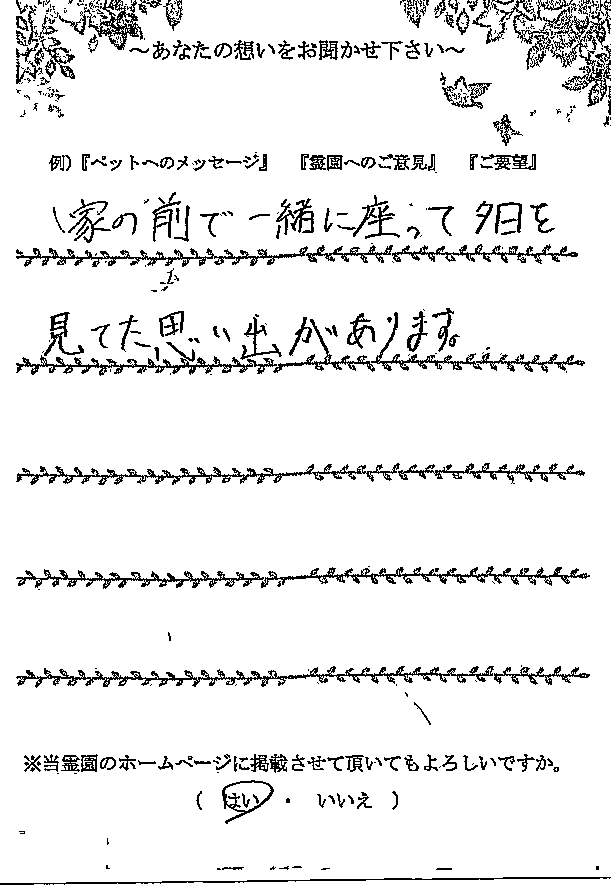 ～あなたの想いをお聞かせ下さい～
例)『ペットへのメッセージ』 『霊園へのご意見』 『ご要望』
家の前で一緒に座って夕日を
見てた思い出があります。
※当霊園のホームページに掲載させて頂いてもよろしいですか。
( はい ・ いいえ )